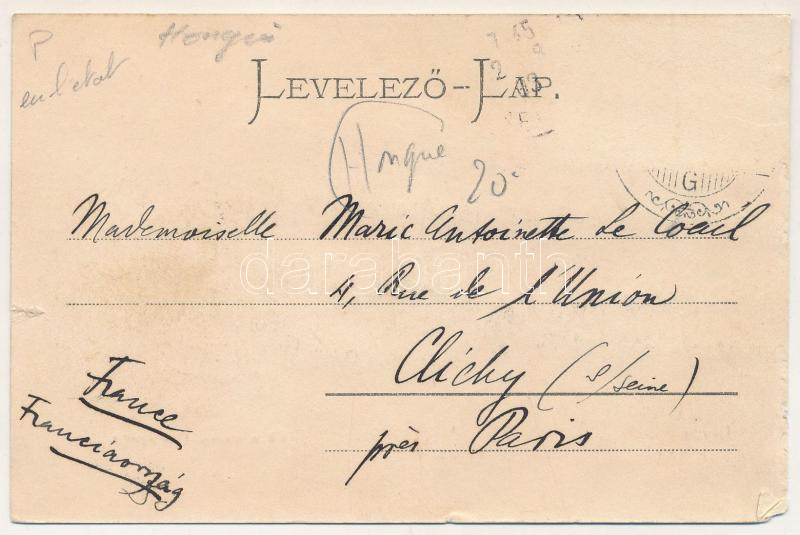 P
en l'etat
Hongrie
LEVELEZŐ-LAP.
Hongrie
20
G
Mademoiselle Marie Antoinette Le
4, Rue de l'Union
Clichy (s/seine)
près Paris
France
Franciaország
darabanth